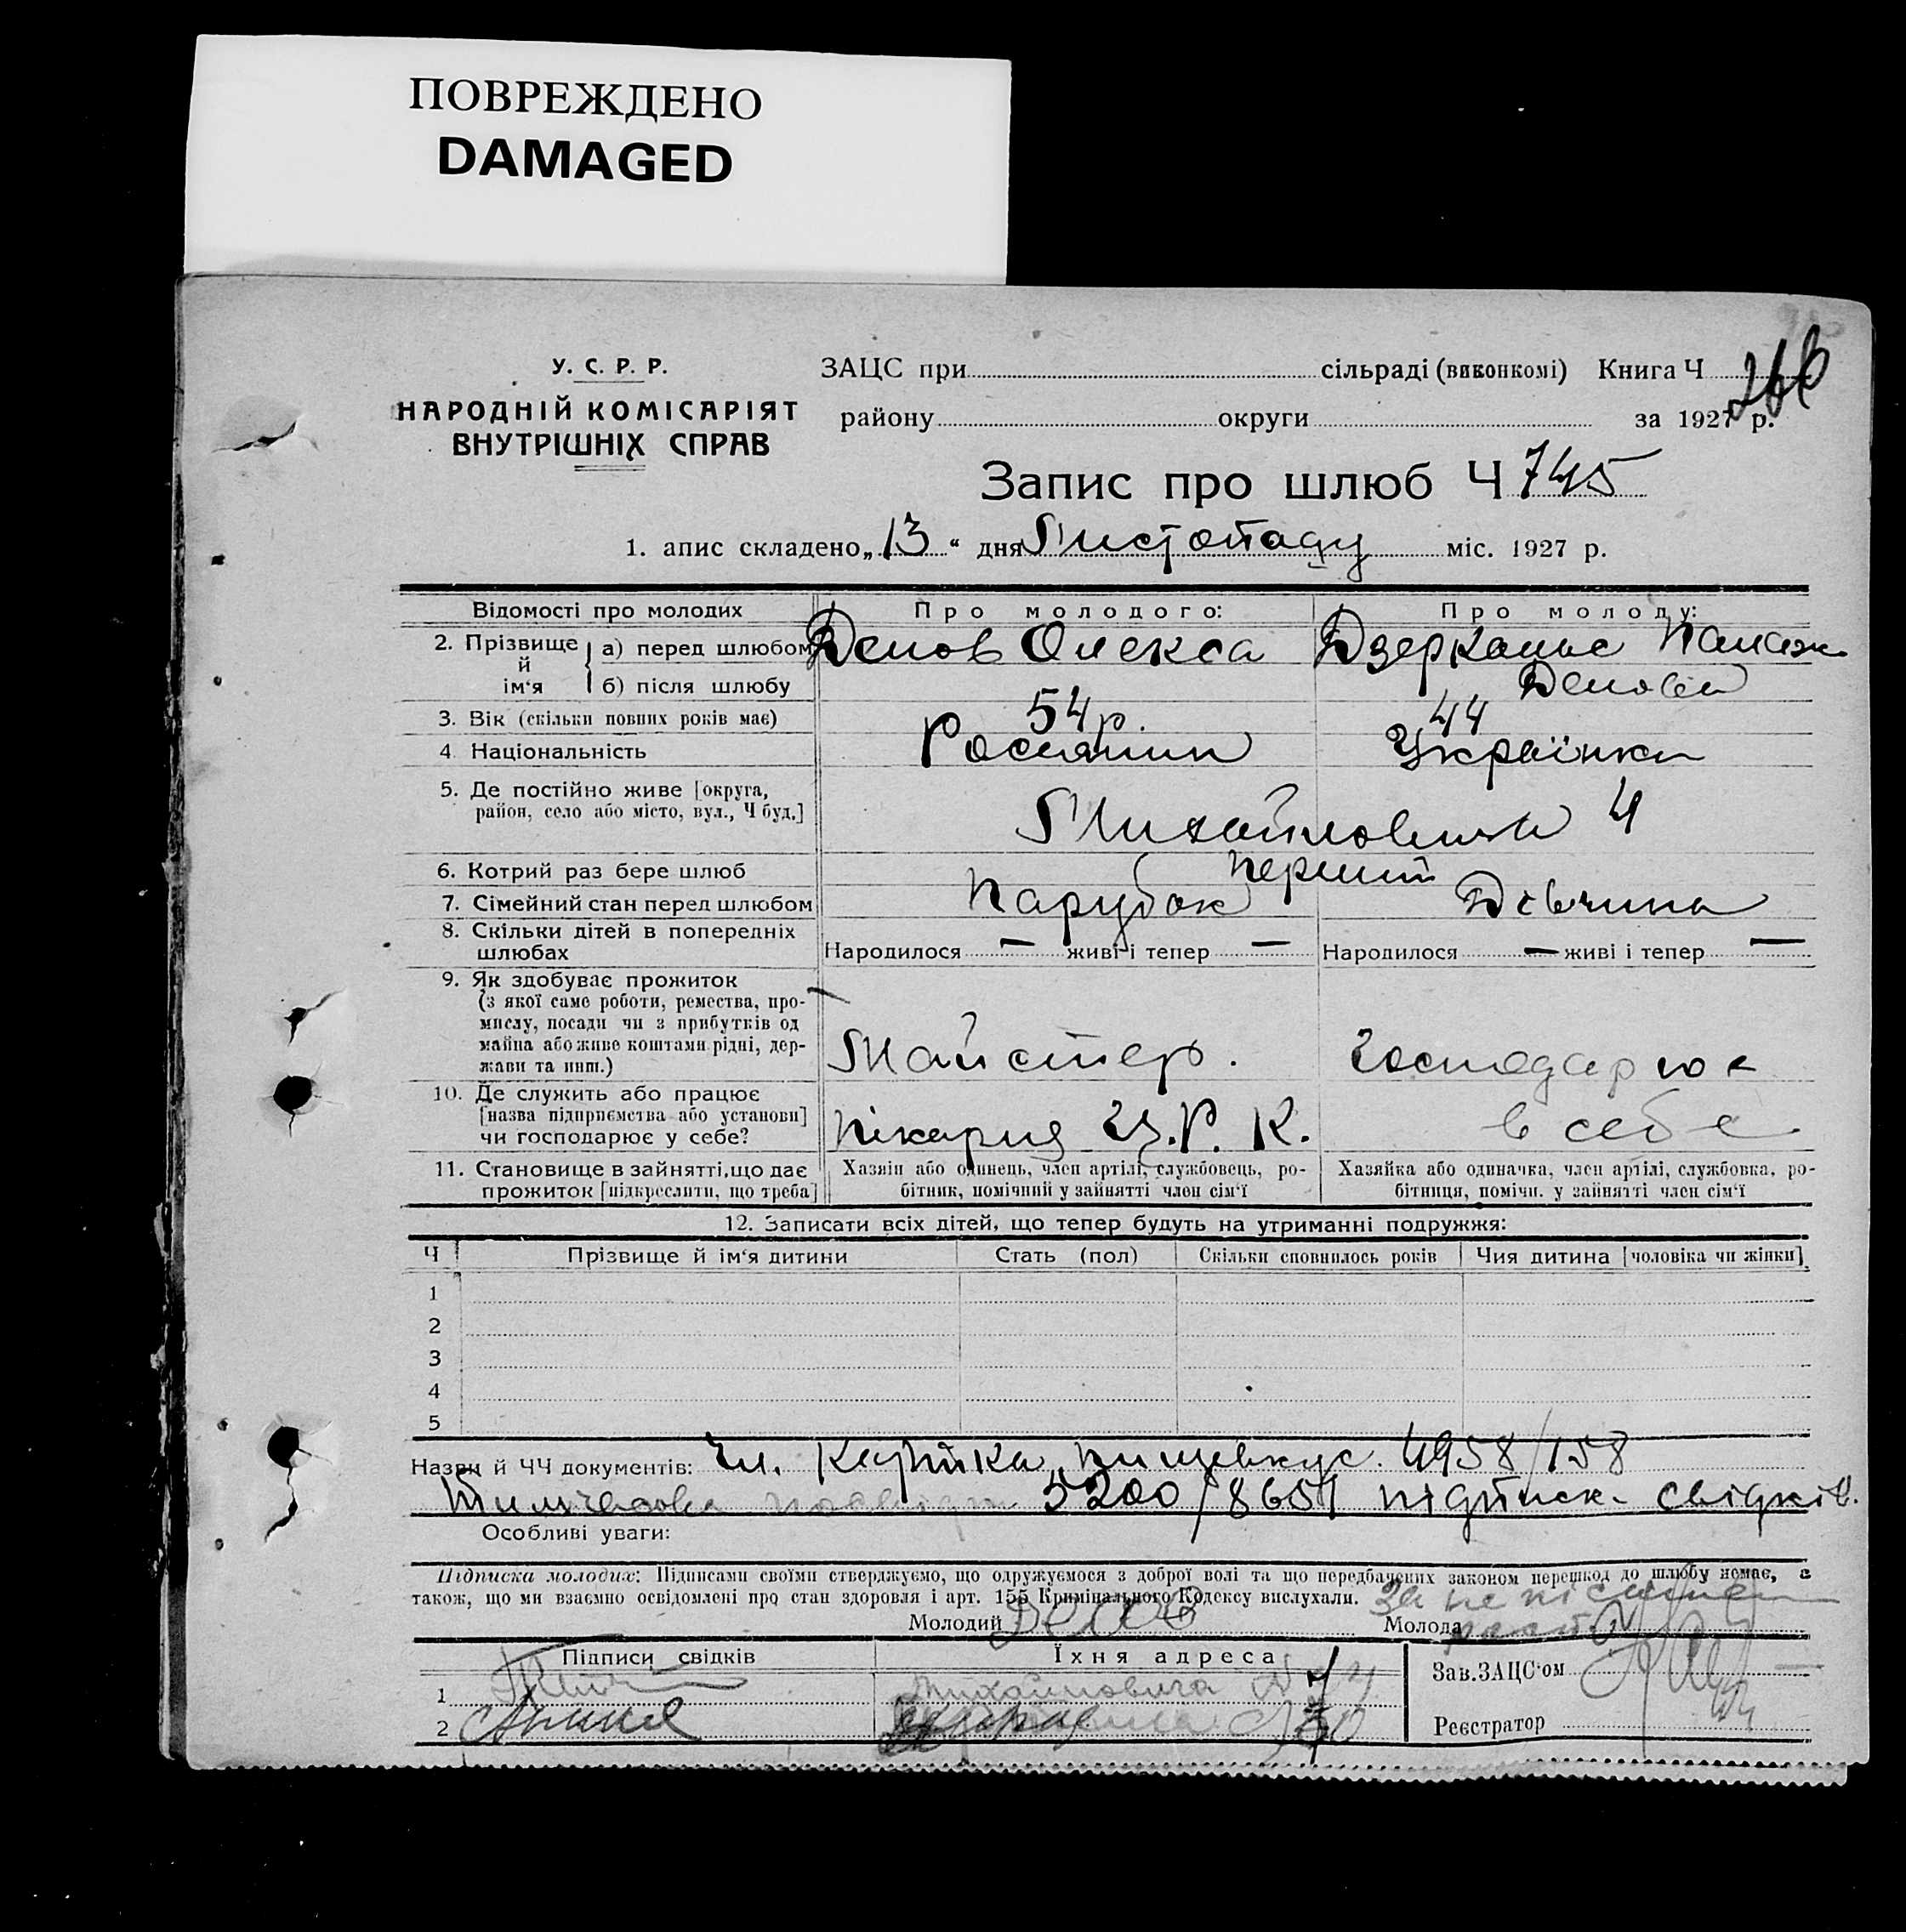 ПОВРЕЖДЕНО
DAMAGED
У. С. Р. Р.
НАРОДНІЙ КОМІСАРІЯТ
ВНУТРІШНІХ СПРАВ
ЗАЦС при сільраді (виконкомі) Книга Ч
району округи за 1927 р.
Запис про шлюб Ч 745
1. апис складено „13“ дня Листопаду міс. 1927 р.
Відомості про молодих Про молодого: Про молоду:
2. Прізвище й ім‘я а) перед шлюбом Демов Олекса
б) після шлюбу
3. Вік (скільки повних років має) 54 р. 44
4 Національність Росиянин Українка
5. Де постійно живе [округа,
район, село або місто, вул., Ч буд.] 4
6. Котрий раз бере шлюб перший
7. Сімейний стан перед шлюбом Парубок Дівчина
8. Скільки дітей в попередніх
шлюбах Народилося — живі і тепер — Народилося — живі і тепер —
9. Як здобуває прожиток
(з якої саме роботи, ремества, про-
мислу, посади чи з прибутків од
майна або живе коштами рідні, дер-
жави та инш.) Майстер. Господарює
10. Де служить або працює
[назва підприємства або установи]
чи господарює у себе? Пікарня Ц.Р.К. в себе
11. Становище в зайнятті, що дає
прожиток [підкреслити, що треба]
Хазяїн або одинець, член артілі, службовець, ро-
бітник, помічний у зайнятті член сім‘ї
Хазяйка або одиначка, член артілі, службовка, ро-
бітниця, помічн. у зайнятті член сім‘ї
12. Записати всіх дітей, що тепер будуть на утриманні подружжя:
Ч Прізвище й ім‘я дитини Стать (пол) Скільки сповнилось років Чия дитина [чоловіка чи жінки]
1
2
3
4
5
Назви й ЧЧ документів: Чл. Картка 4958/158
5200/8651 підписк. свідків.
Особливі уваги:
Підписка молодих: Підписами своїми стверджуємо, що одружуємося з доброї волі та що передбачених законом перешкод до шлюбу немає, а
також, що ми взаємно освідомлені про стан здоровля і арт. 155 Кримінального Кодексу вислухали.
Молодий Молода
Підписи свідків Їхня адреса Зав. ЗАЦС‘ом
1
2 Реєстратор